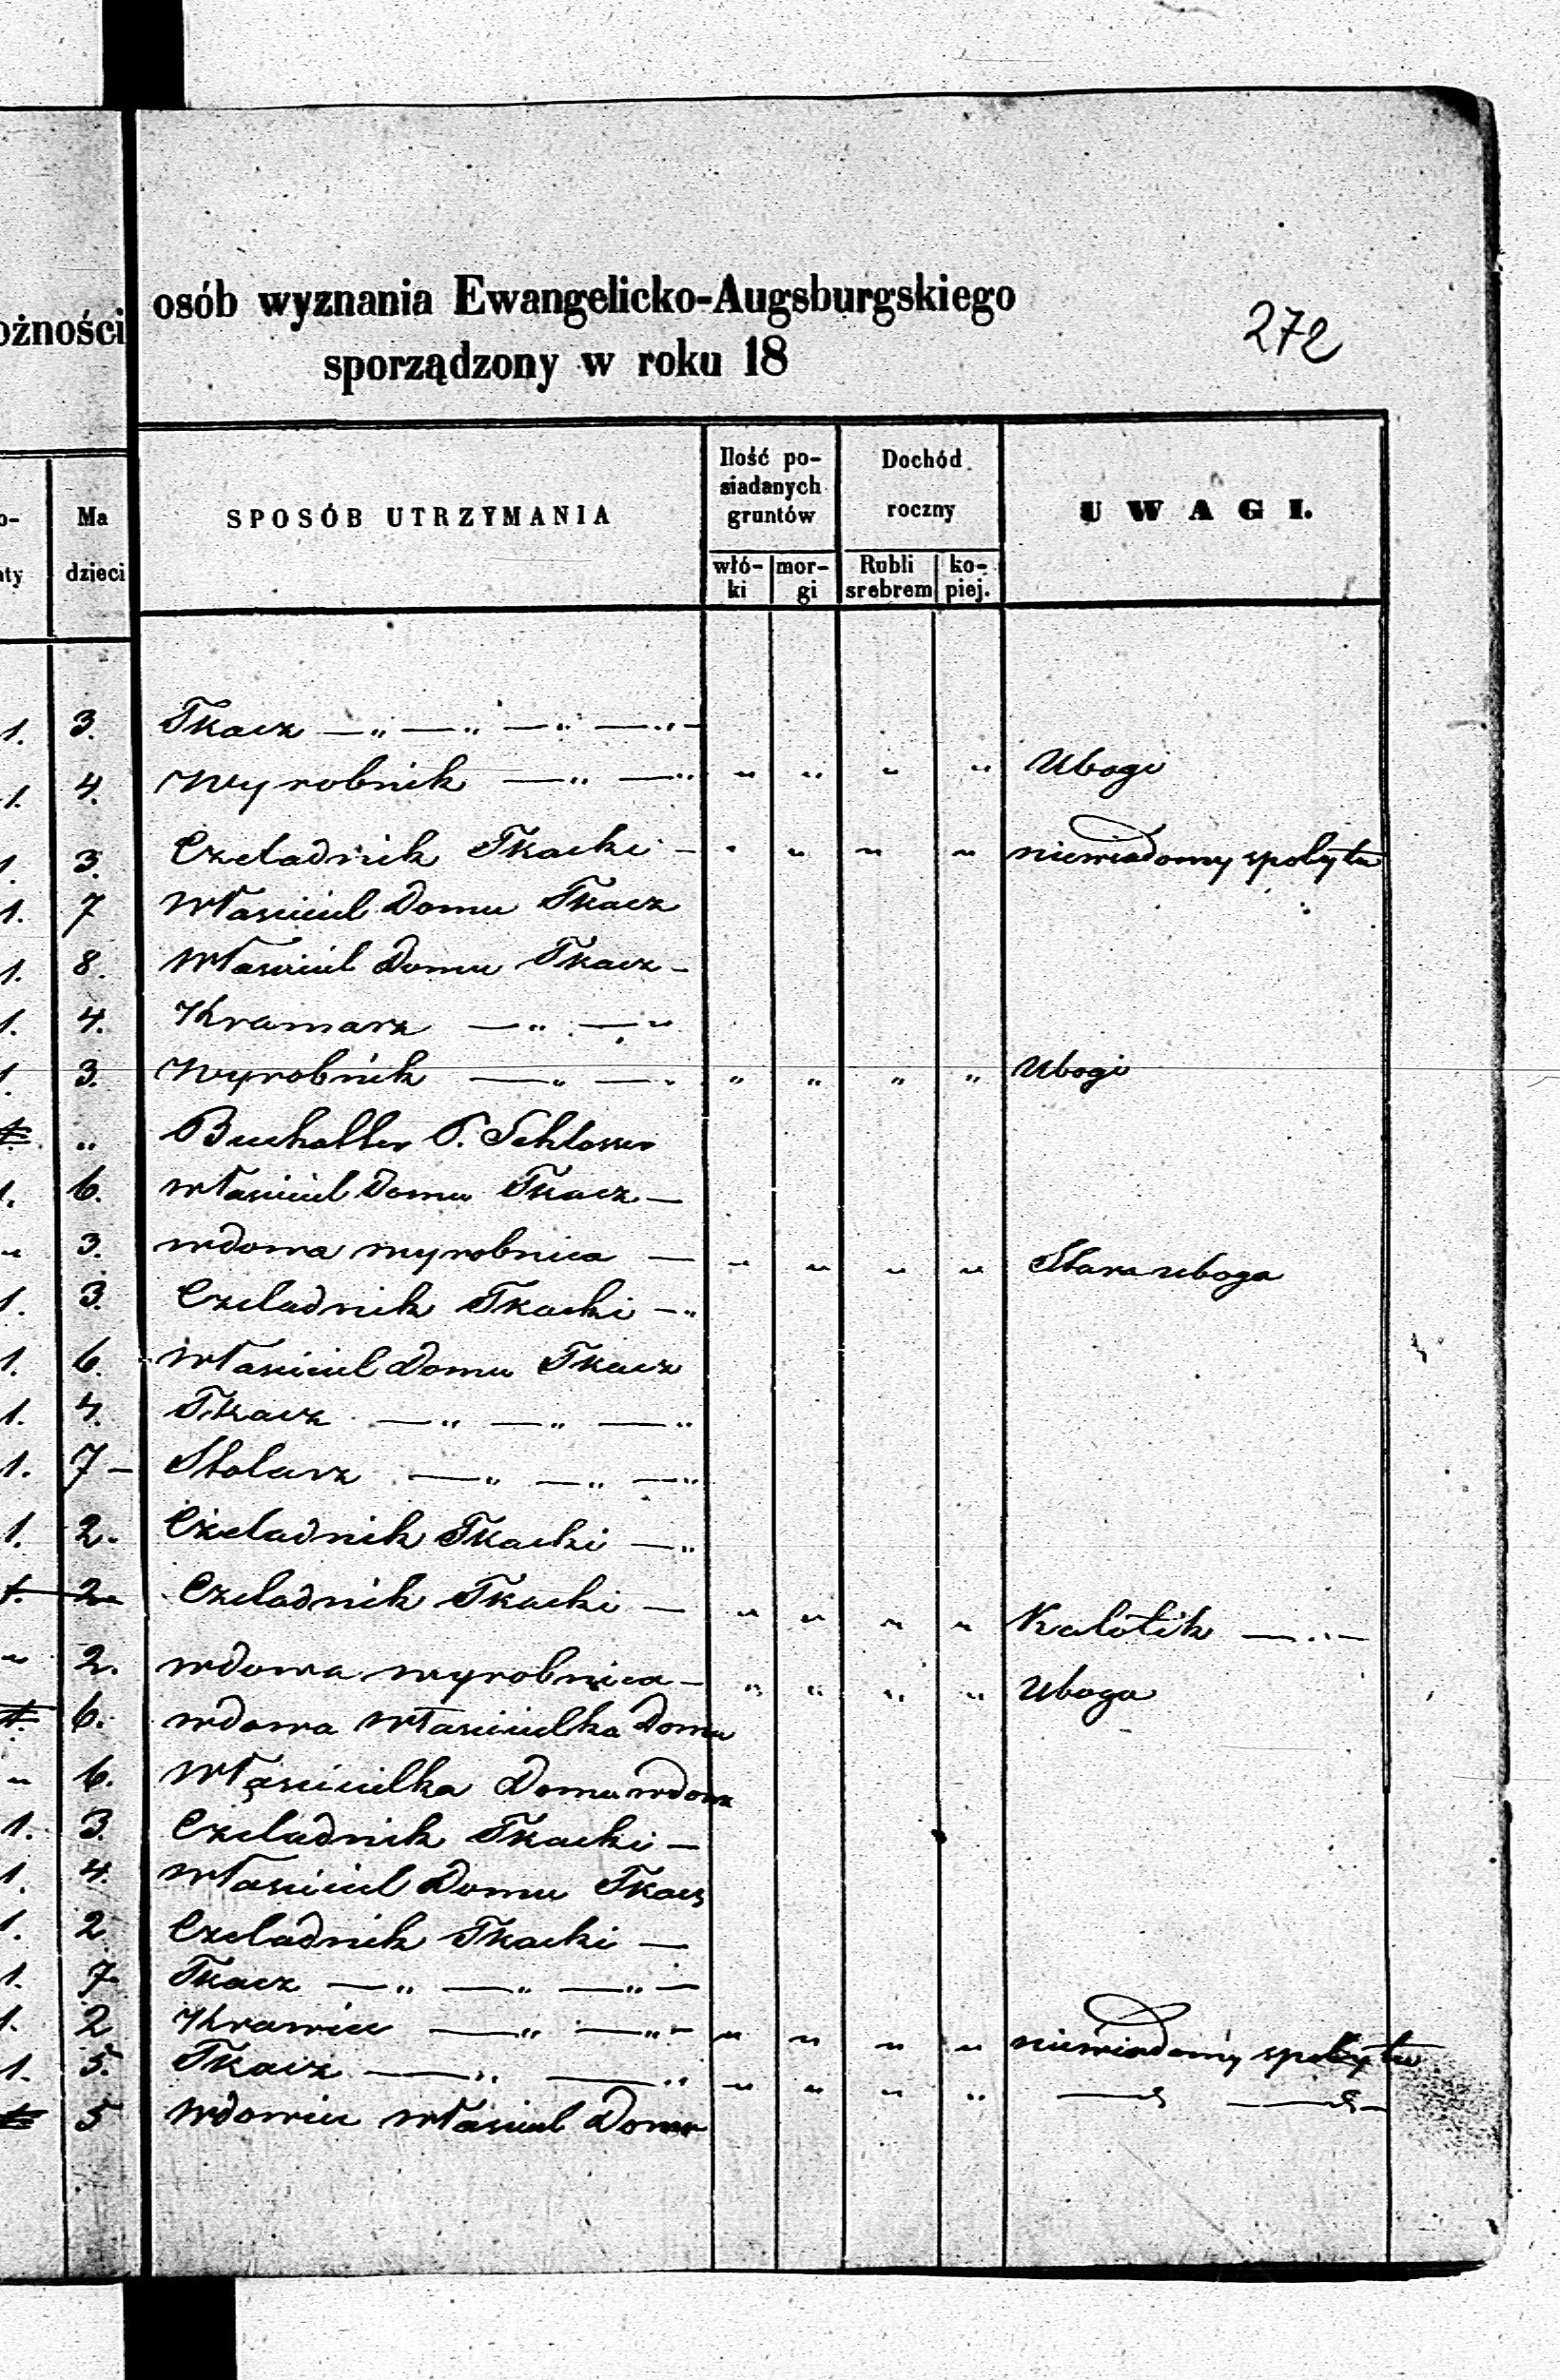 osób wyznania Ewangelicko-Augsburgskiego
ożności
sporządzony w roku 18
272
o-
aty
Ma dzieci
SPOSÓB UTRZYMANIA
Ilość po-
siadanych
gruntów
włó-
ki
mor-
gi
Dochód
roczny
Rubli
srebrem
ko-
piej.
UWAGI.
1. 3. Tkacz — „ — „ — „ — „ —
1. 4. Wyrobnik — „ — „ „ „ „ „ Ubogi
1. 3. Czeladnik Tkacki — „ „ „ „ niewiadomy z pobytu
1. 7 Własciciel Domu Tkacz
1. 8. Własciciel Domu Tkacz —
1. 4. Kramarz — „ — „
1. 3. Wyrobnik — „ — „ „ „ „ „ Ubogi
1. „ Buchalter P. Schlosser
1. 6. własciciel Domu Tkacz —
„ 3. wdowa wyrobnica — „ „ „ „ Stara uboga
1. 3. Czeladnik Tkacki — „
1. 6. Własciciel Domu Tkacz
1. 4. Tkacz — „ — „ — „
1. 7 — Stolarz — „ — „ — „
1. 2. Czeladnik Tkacki — „
1. 2. Czeladnik Tkacki — „ „ „ „ Katolik — „ —
„ 2. wdowa wyrobnica — „ „ „ „ Uboga
1. 6. wdowa włascicielka Domu
„ 6. Włascicielka Domu wdowa
1. 3. Czeladnik Tkacki —
1. 4. Własciciel Domu Tkacz
1. 2 Czeladnik Tkacki —
1. 7 Tkacz — „ — „ — „ —
1. 2 Krawiec — „ — „ — „ „ „ „ niewiadomy z pobytu
1. 5. Tkacz — „ — „ „ „ „ „ — „ — „ —
1. 5 Wdowiec własciciel Domu